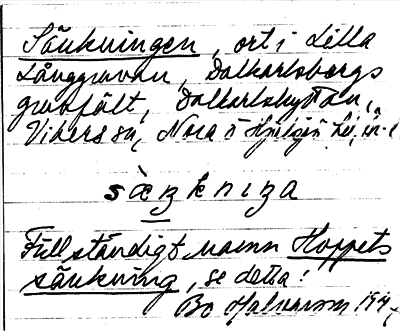 Sänkningen, ort i Lilla
Långgruvan, Dalkarlsbergs
gruvfält, Dalkarlshyttan,
Vikers sn, Nora o Hjulsjö
sæŋkniŋa
Fullständigt namn Hoppets
sänkning, se detta!
Bo Halvarson